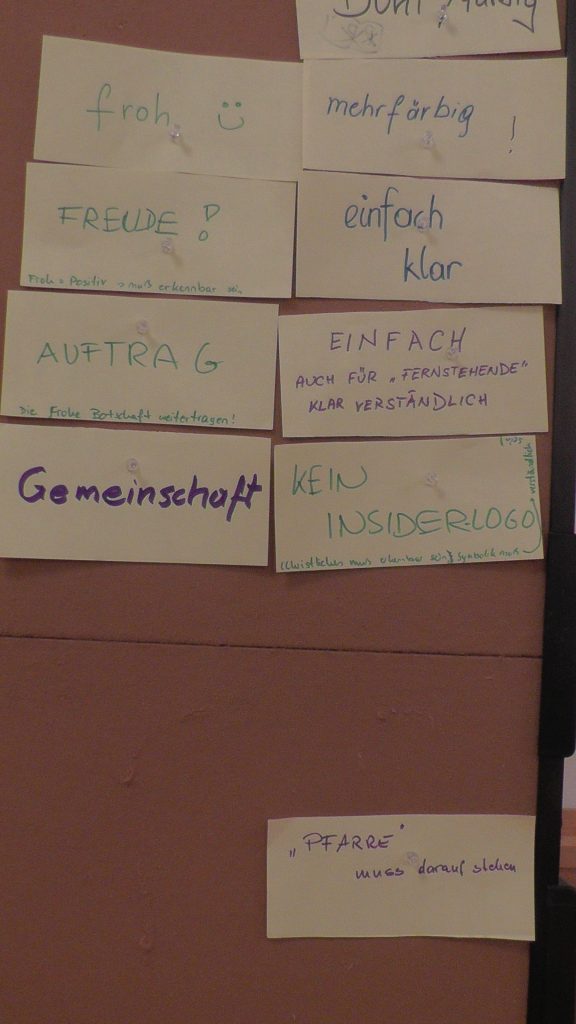 froh
mehrfärbig !
FREUDE !
Froh = Positiv → muß erkennbar sein
einfach
klar
AUFTRAG
Die Frohe Botschaft weitertragen!
EINFACH
AUCH FÜR „FERNSTEHENDE"
KLAR VERSTÄNDLICH
Gemeinschaft
KEIN
INSIDER-LOGO
Christliches muss erkennbar sein Symbolik muss
verständlich
„PFARRE"
muss darauf stehen